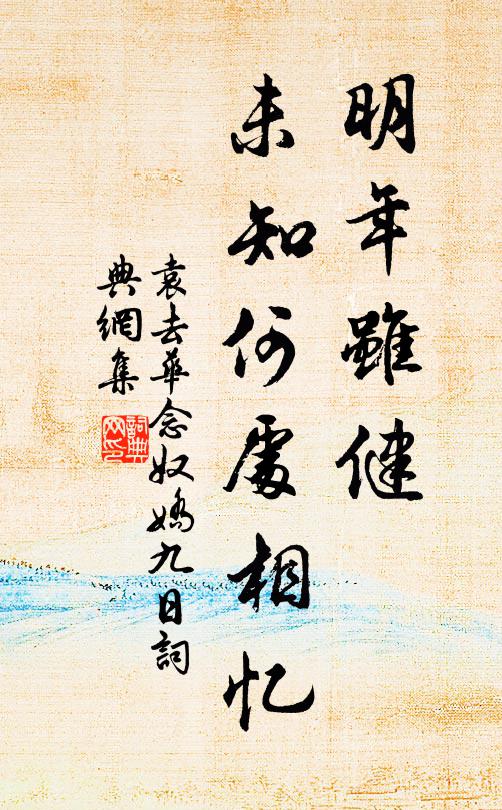 明年雖健
未知何處相忆
袁去華念奴嬌九日詞
典網集
詞典
网印